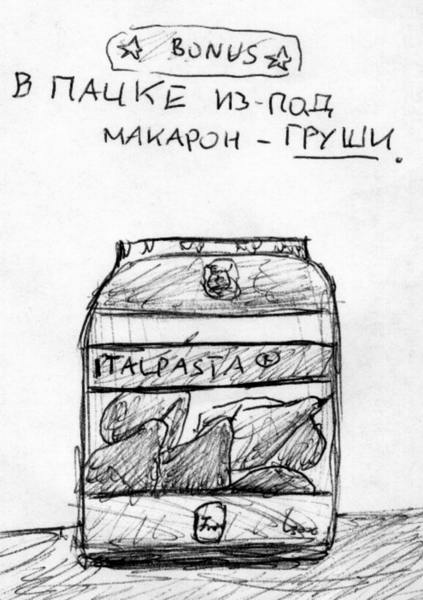 ☆ BONUS ☆
В ПАЦКЕ ИЗ-ПОД
МАКАРОН - ГРУШИ.
ITALPASTA ®